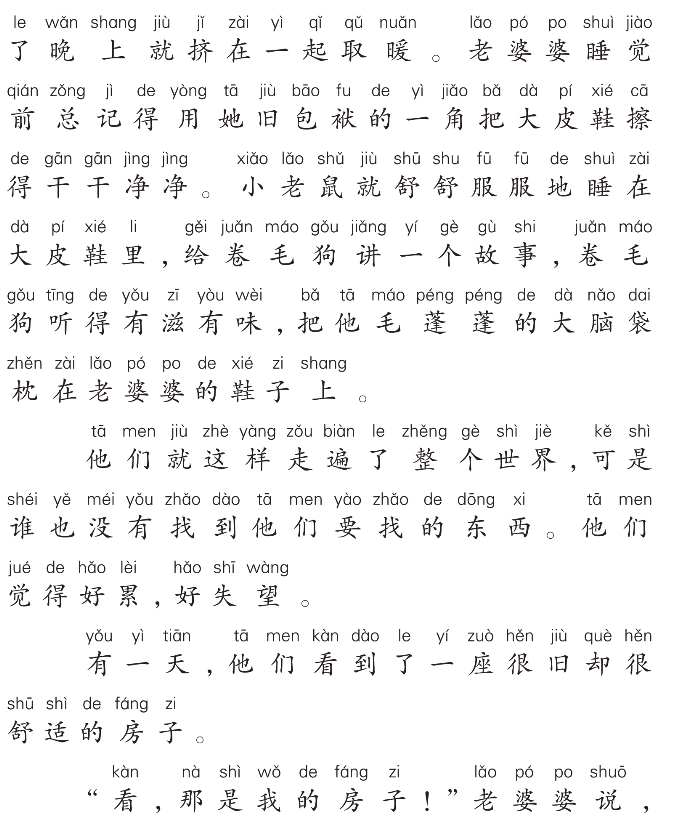 le wǎn shang jiù jǐ zài yì qǐ qǔ nuǎn lǎo pó po shuì jiào
了晚上就挤在一起取暖。老婆婆睡觉
qián zǒng jì de yòng tā jiù bāo fu de yì jiǎo bǎ dà pí xié cā
前总记得用她旧包袱的一角把大皮鞋擦
de gān gān jìng jìng xiǎo lǎo shǔ jiù shū shu fū fū de shuì zài
得干干净净。小老鼠就舒舒服服地睡在
dà pí xié li gěi juǎn máo gǒu jiǎng yí gè gù shi juǎn máo
大皮鞋里,给卷毛狗讲一个故事,卷毛
gǒu tīng de yǒu zī yòu wèi bǎ tā máo péng péng de dà nǎo dai
狗听得有滋有味,把他毛蓬蓬的大脑袋
zhěn zài lǎo pó po de xié zi shang
枕在老婆婆的鞋子上。
tā men jiù zhè yàng zǒu biàn le zhěng gè shì jiè kě shì
他们就这样走遍了整个世界,可是
shéi yě méi yǒu zhǎo dào tā men yào zhǎo de dōng xi tā men
谁也没有找到他们要找的东西。他们
jué de hǎo lèi hǎo shī wàng
觉得好累,好失望。
yǒu yì tiān tā men kàn dào le yí zuò hěn jiù què hěn
有一天,他们看到了一座很旧却很
shū shì de fáng zi
舒适的房子。
kàn nà shì wǒ de fáng zi lǎo pó po shuō
“看,那是我的房子!”老婆婆说,